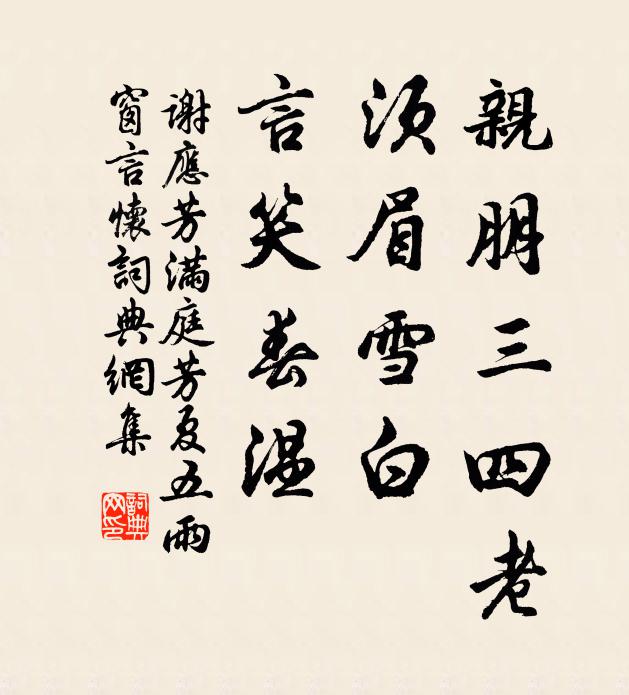 親朋三四老
須眉雪白
言笑春溫
謝應芳滿庭芳夏五雨
窗言懷詞典網集
詞典网印